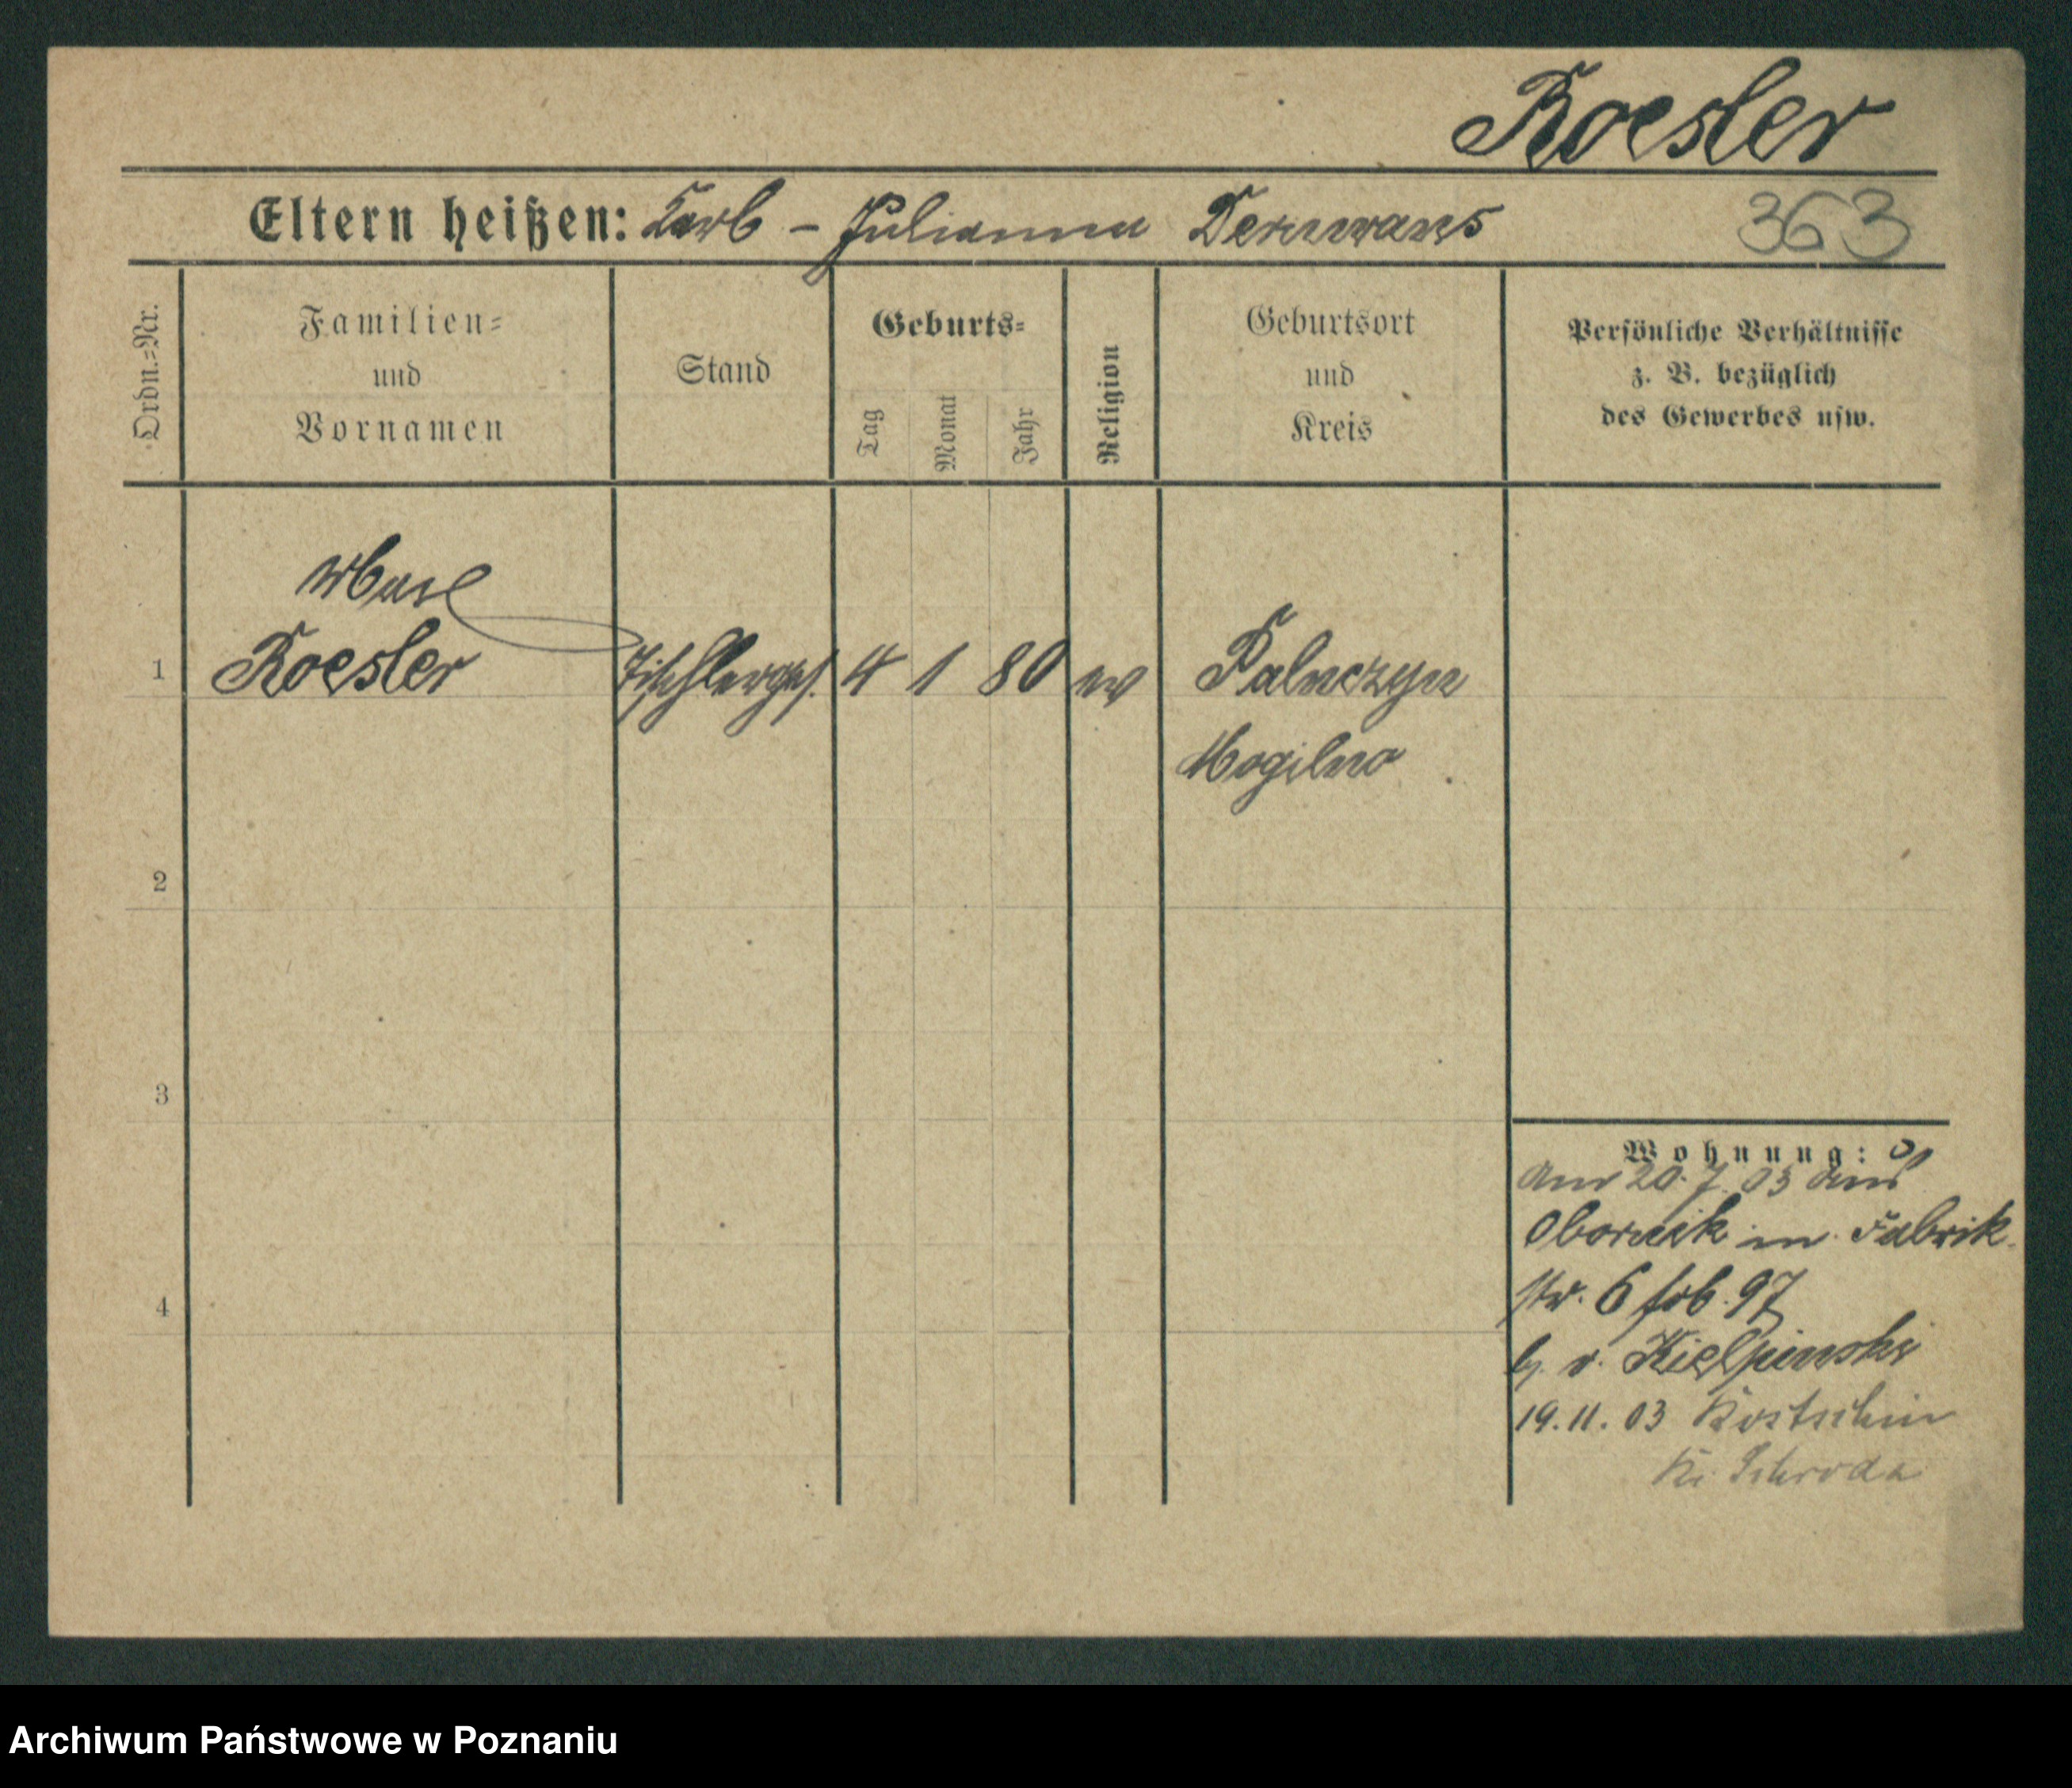 Roesler
Eltern heißen: Karl – Julianna
363
Ordn.-Nr.
Familien-
und
Vornamen
Stand
Geburts-
Tag
Monat
Jahr
Religion
Geburtsort
und
Kreis
Persönliche Verhältnisse
z. B. bezüglich
des Gewerbes usw.
1
Roesler
Tischlerges. 4 1 80 ev
Palnczyn
Mogilno
2
3
4
Wohnung:
am 20.7.03 aus
Obornik in Fabrik
str. 6 fob. 97
b. v. Kielpinski
19.11.03 Kostschin
Kr. Schroda
Archiwum Państwowe w Poznaniu